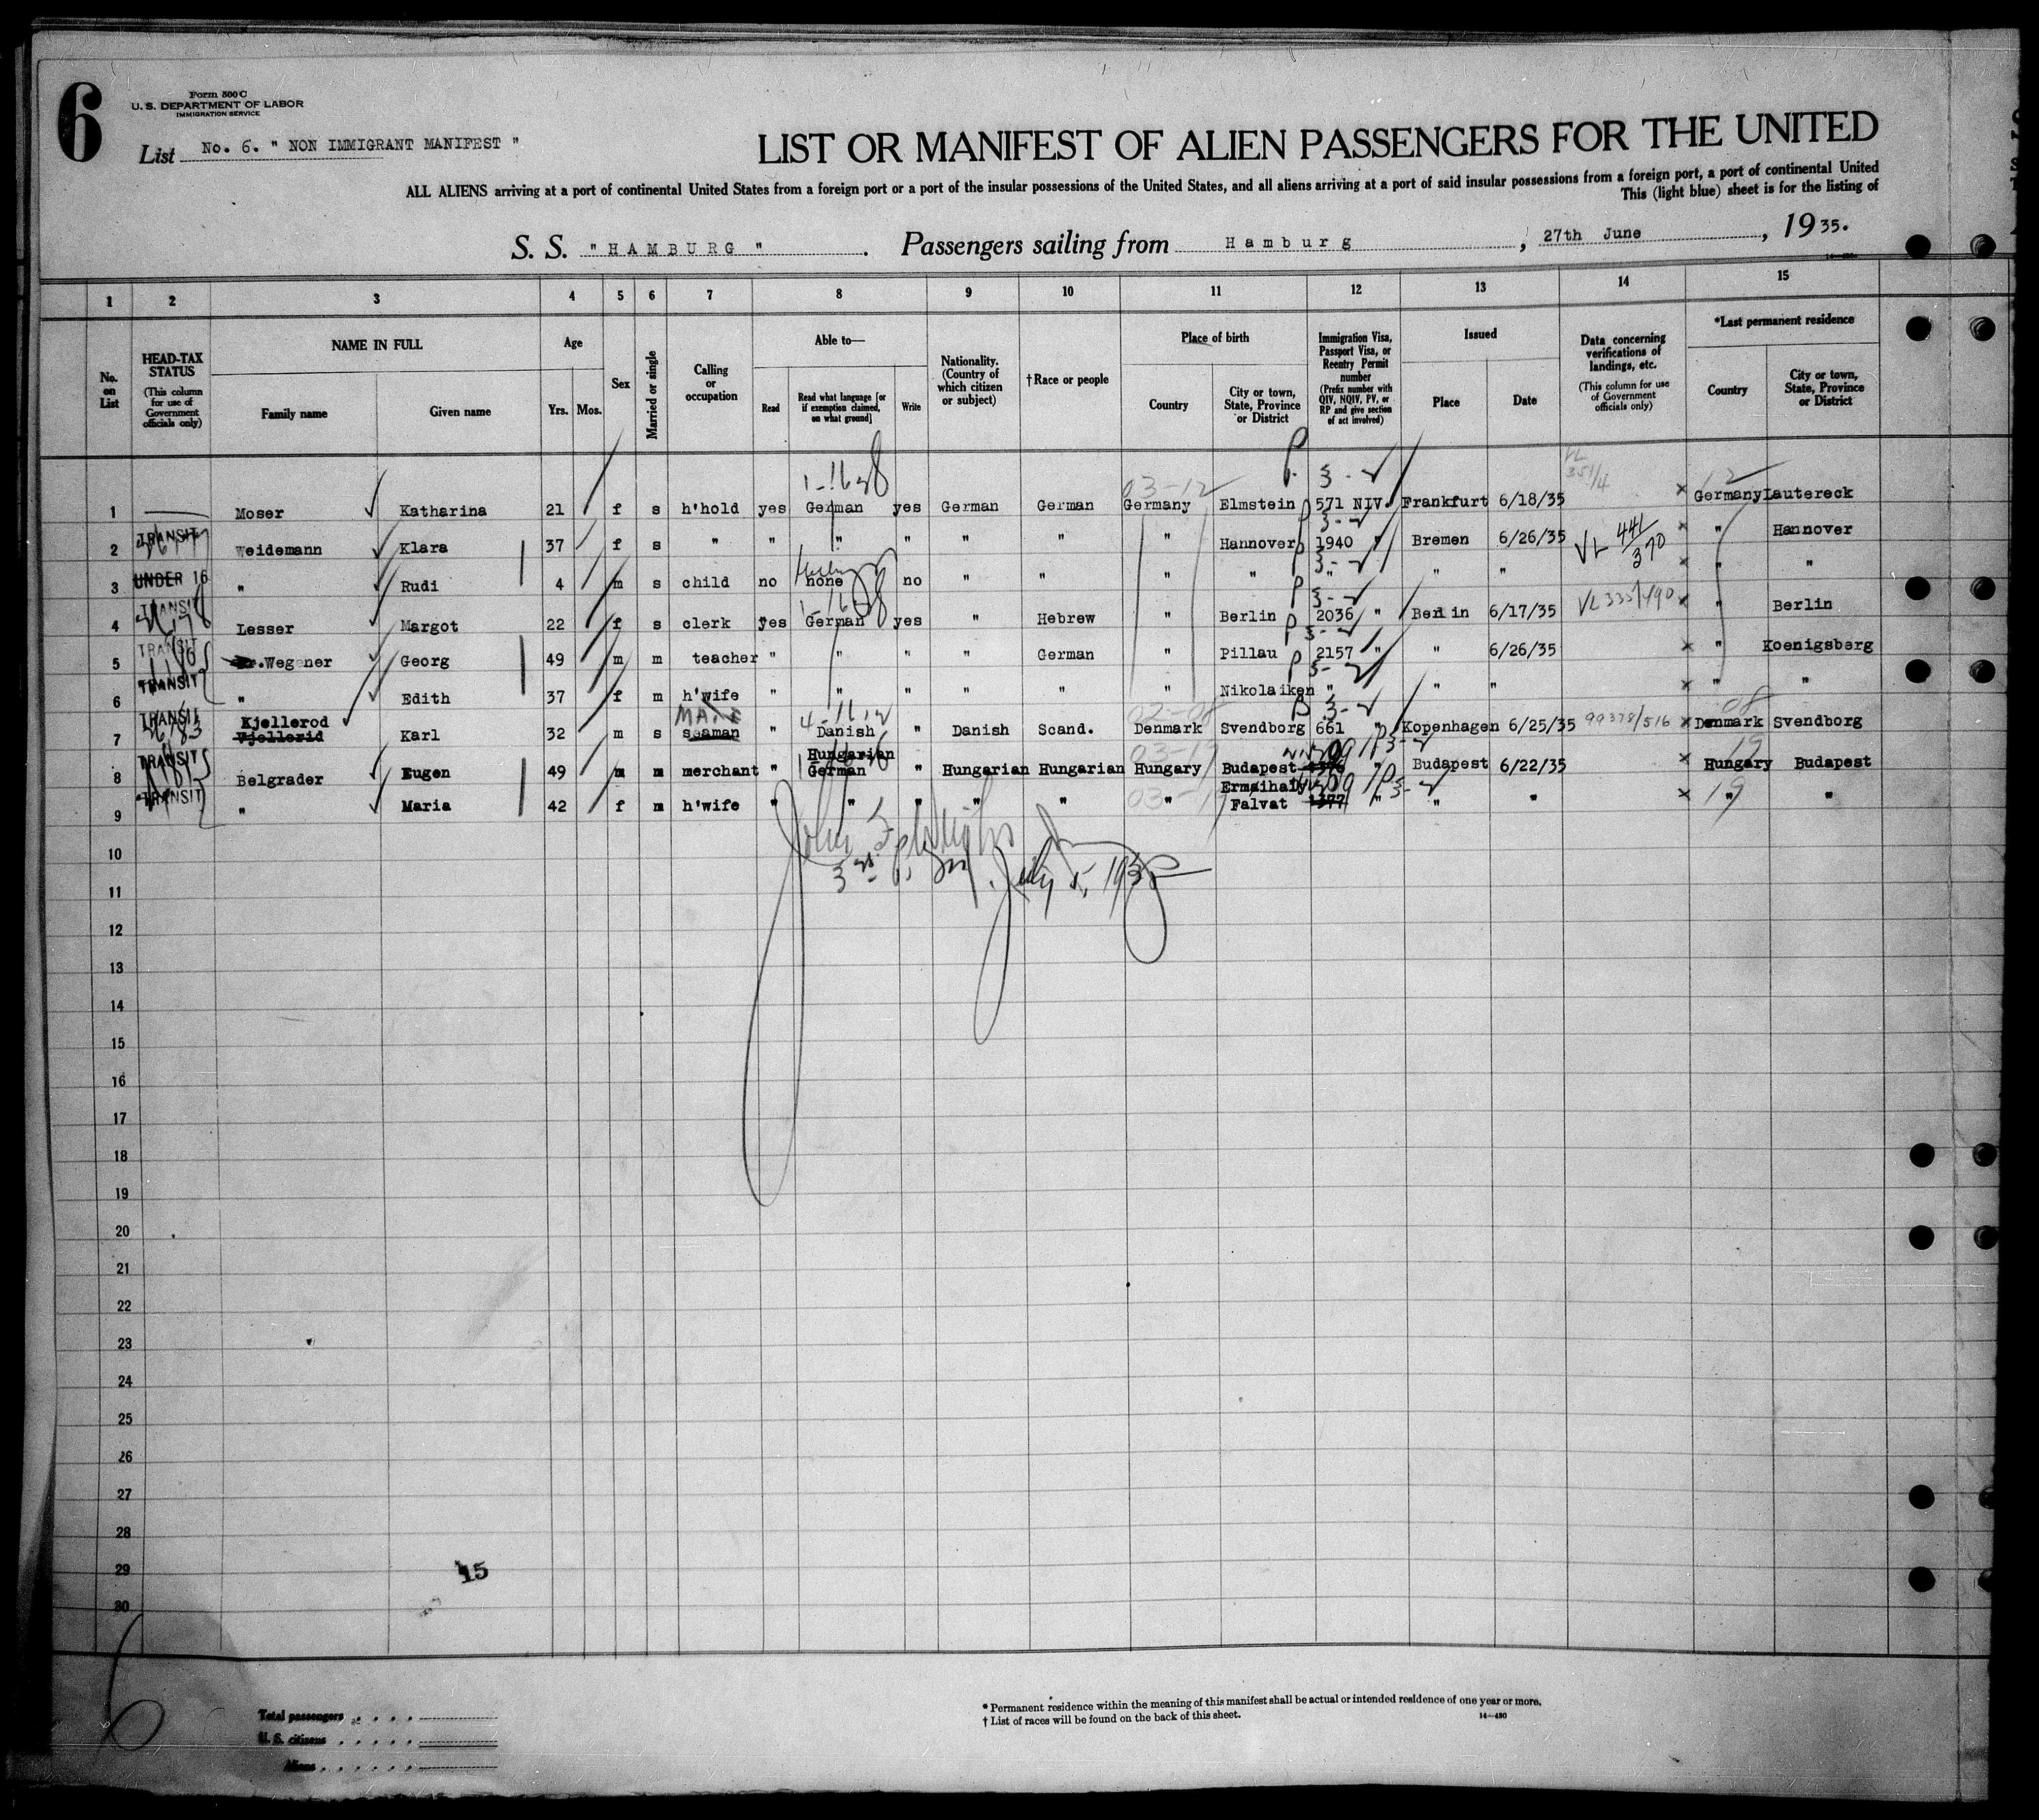 6
Form 500 C
U. S. DEPARTMENT OF LABOR
IMMIGRATION SERVICE
List No. 6. " NON IMMIGRANT MANIFEST "
LIST OR MANIFEST OF ALIEN PASSENGERS FOR THE UNITED
ALL ALIENS arriving at a port of continental United States from a foreign port or a port of the insular possessions of the United States, and all aliens arriving at a port of said insular possessions from a foreign port, a port of continental United
This (light blue) sheet is for the listing of
S. S. " HAMBURG " . Passengers sailing from Hamburg , 27th June , 1935.
1 2 3 4 5 6 7 8 9 10 11 12 13 14 15
No. on List
HEAD-TAX STATUS (This column for use of Government officials only)
NAME IN FULL Family name Given name
Age Yrs. Mos.
Sex
Married or single
Calling or occupation
Able to— Read Read what language [or if exemption claimed, on what ground] Write
Nationality. (Country of which citizen or subject)
†Race or people
Place of birth Country City or town, State, Province or District
Immigration Visa, Passport Visa, or Reentry Permit number (Prefix number with QIV, NQIV, PV, or RP and give section of act involved)
Issued Place Date
Data concerning verifications of landings, etc. (This column for use of Government officials only)
*Last permanent residence Country City or town, State, Province or District
1 Moser Katharina 21 f s h'hold yes German yes German German Germany Elmstein 571 NIV. Frankfurt 6/18/35 VL 351/4 x Germany Lautereck
2 TRANSIT Weidemann Klara 37 f s " " " " " " " Hannover 1940 " Bremen 6/26/35 VL 441/370 x " Hannover
3 UNDER 16 " Rudi 4 m s child no none no " " " " " " " x " "
4 TRANSIT Lesser Margot 22 f s clerk yes German yes " Hebrew " Berlin 2036 " Berlin 6/17/35 VL 335/490 x " Berlin
5 TRANSIT Dr. Wegener Georg 49 m m teacher " " " " German " Pillau 2157 " " 6/26/35 x " Koenigsberg
6 TRANSIT " Edith 37 f m h'wife " " " " " " Nikolaiken " " " x " "
7 TRANSIT Kjellerod Vjellerid Karl 32 m s seaman " Danish " Danish Scand. Denmark Svendborg 661 " Kopenhagen 6/25/35 99378/516 x Denmark Svendborg
8 TRANSIT Belgrader Eugen 49 m m merchant " Hungarian German " Hungarian Hungarian Hungary Budapest 1376 " Budapest 6/22/35 x Hungary Budapest
9 TRANSIT " Maria 42 f m h'wife " " " " " " Falvat 1377 " " " x " "
July 5, 1935
10
11
12
13
14
15
16
17
18
19
20
21
22
23
24
25
26
27
28
29
30
15
Total passengers
U. S. citizens
Aliens
* Permanent residence within the meaning of this manifest shall be actual or intended residence of one year or more.
† List of races will be found on the back of this sheet.
14—480